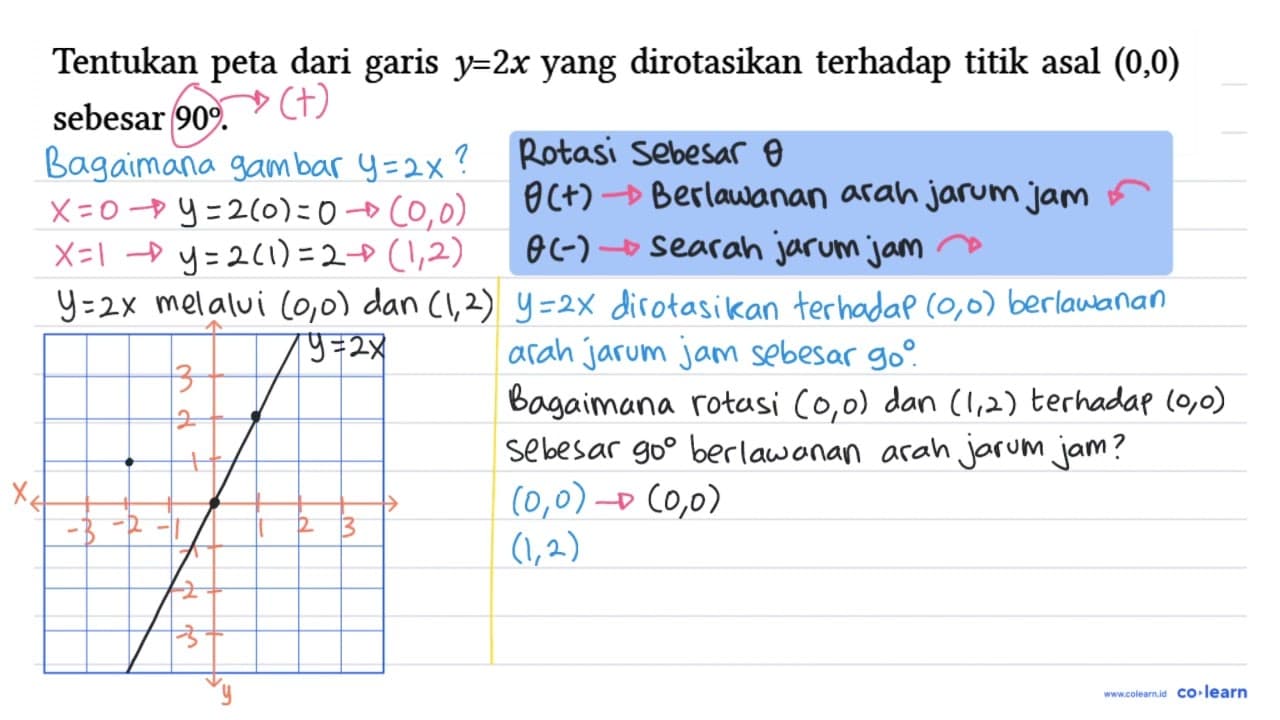 Tentukan peta dari garis y=2x yang dirotasikan terhadap titik asal (0,0)
sebesar 90°. → (+)
Bagaimana gambar y=2x?
x=0 → y=2(0)=0 → (0,0)
x=1 → y=2(1)=2 → (1,2)
y=2x melalui (0,0) dan (1,2)
Rotasi Sebesar θ
θ(+) → Berlawanan arah jarum jam
θ(-) → searah jarum jam
y=2x
3
2
1
x
-3 -2 -1 1 2 3
-1
-2
-3
y
y=2x dirotasikan terhadap (0,0) berlawanan
arah jarum jam sebesar 90°.
Bagaimana rotasi (0,0) dan (1,2) terhadap (0,0)
sebesar 90° berlawanan arah jarum jam?
(0,0) → (0,0)
(1,2)
www.colearn.id co·learn